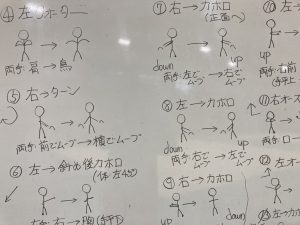 ④ 左→ターン
両手：肩 → 鳥
⑤ 右→ターン
両手：前でムーブ→横でムーブ
⑥ 左→斜め後カホロ
(体 左45°)
右→胸
⑦ 右→カホロ
(正面へ)
down
up
両手：左でムーブ → 右でムーブ
⑧ 左→カホロ
down
up
両手：右でムーブ → 左でムーブ
⑨ 右→カホロ
up
down
⑩ 左
up
両手：右前
⑪ 右オー
両手：ロー
⑫ 左オー